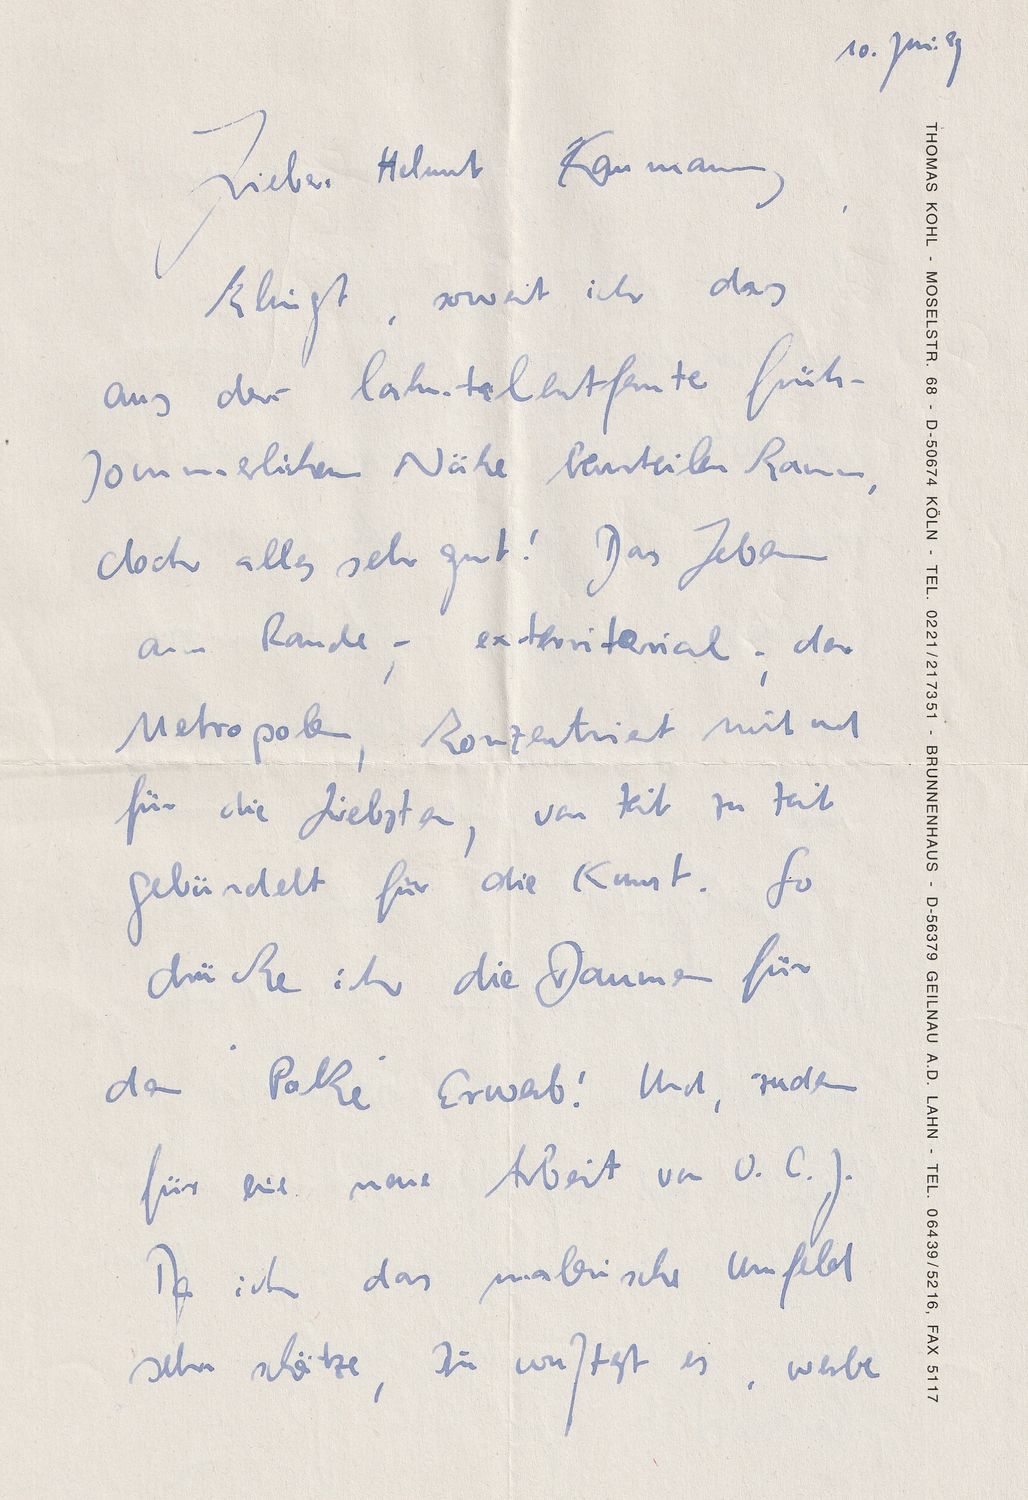 10. Juni 99
Lieber Helmut Kaumann,
Klingt, soweit ich das
aus der lahntalentfernte früh-
sommerlichen Nähe beurteilen kann,
doch alles sehr gut! Das Leben
am Rande, - exterritorial -, der
Metropolen, konzentriert mit und
für die Liebsten, von Zeit zu Zeit
gebündelt für die Kunst. So
drücke ich die Daumen für
den "Polke" Erwerb! Und, zudem
für eine neue Arbeit von U. C. J.
Da ich das malerische Umfeld
sehr schätze, Du wußtest es, werbe
THOMAS KOHL - MOSELSTR. 68 - D-50674 KÖLN - TEL. 0221/217351 - BRUNNENHAUS - D-56379 GEILNAU A.D. LAHN - TEL. 06439/5216, FAX 5117